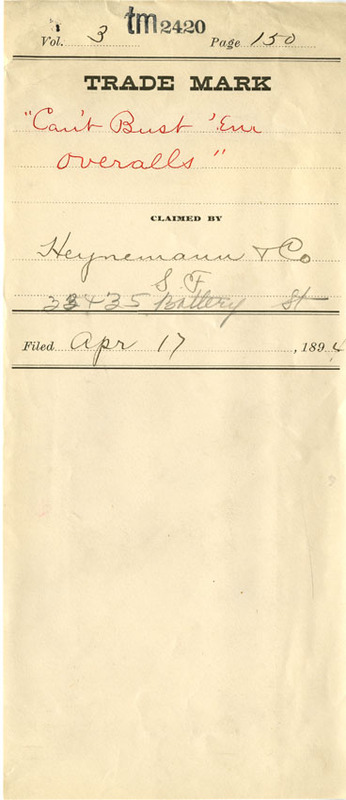 tm2420
Vol. 3 Page 150
TRADE MARK
"Can't Bust 'Em
Overalls"
CLAIMED BY
Heynemann & Co
S. F.
33 & 35 Battery St
Filed Apr 17, 1894